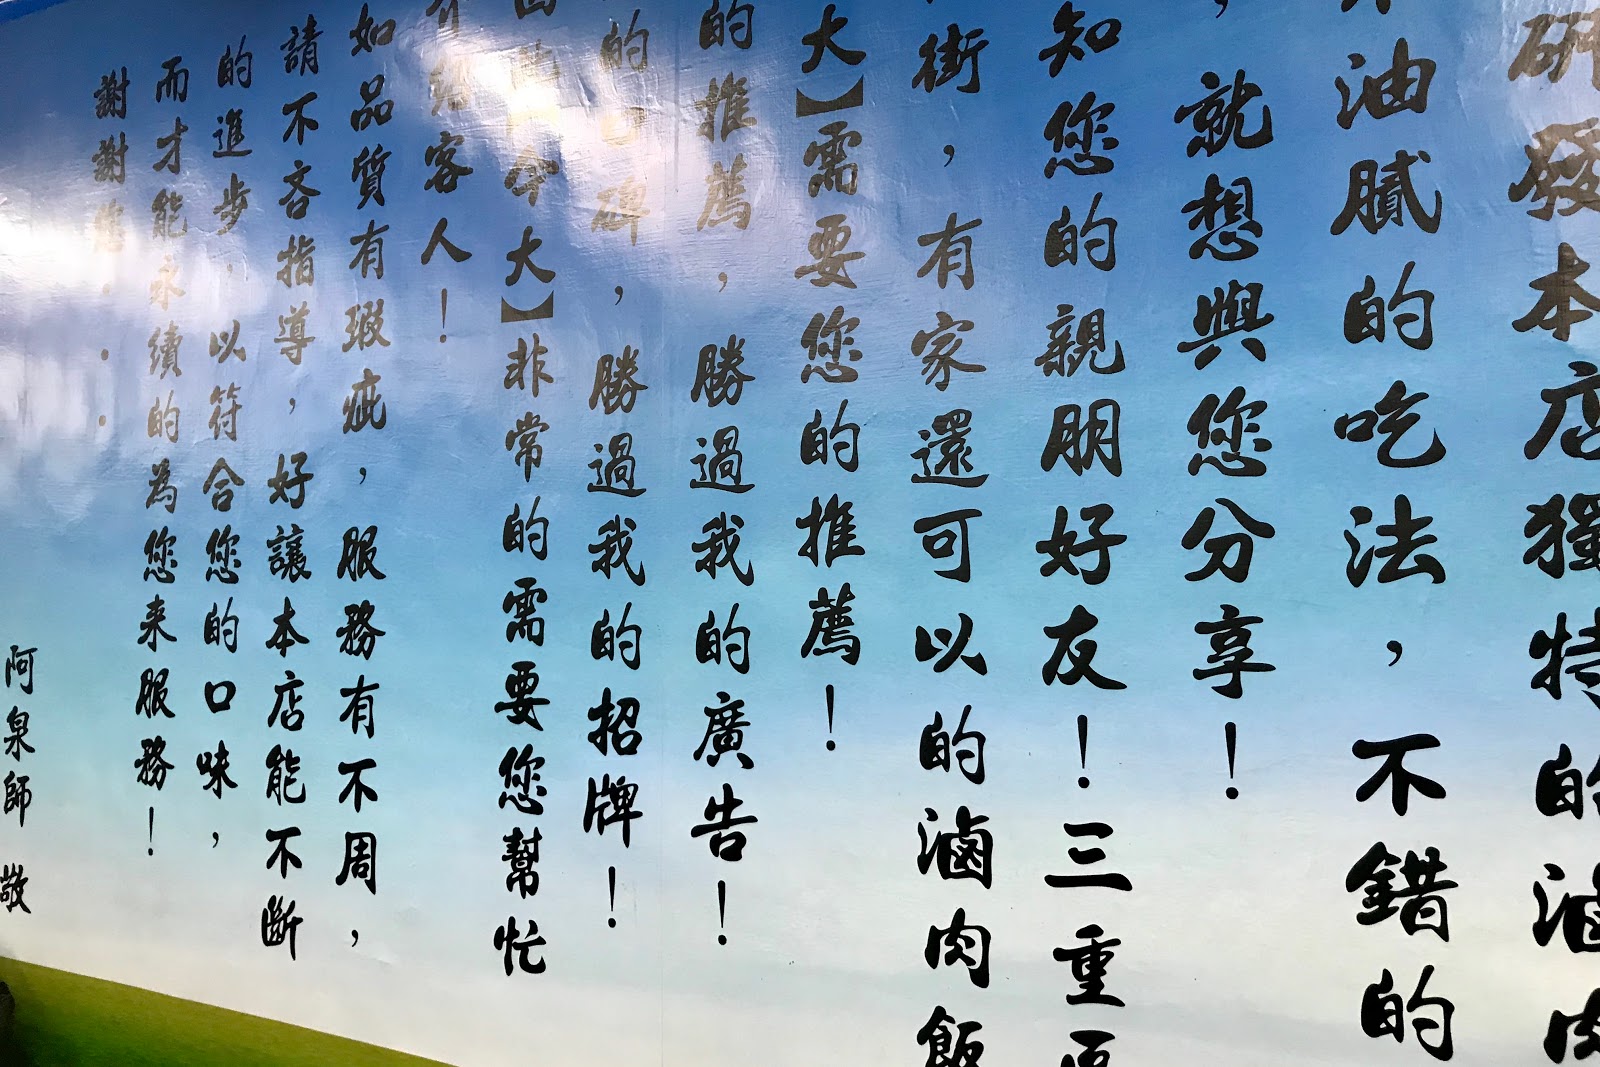 研發本店獨特的滷肉
油膩的吃法，不錯的
，就想與您分享！
知您的親朋好友！三重
街，有家還可以的滷肉飯
大】需要您的推薦！
的推薦，勝過我的廣告！
的口碑，勝過我的招牌！
今大】非常的需要您幫忙
介紹客人！
如品質有瑕疵，服務有不周，
請不吝指導，好讓本店能不斷
的進步．以符合您的口味，
而才能永續的為您來服務！
謝謝您．．．
阿泉師 敬